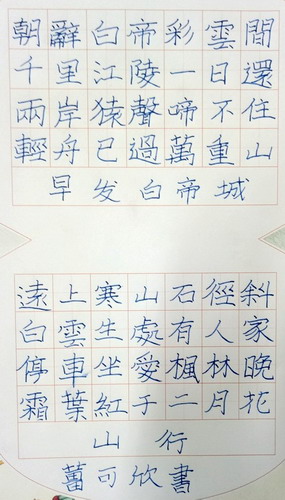 朝辭白帝彩雲間
千里江陵一日還
兩岸猿聲啼不住
輕舟已過萬重山
早发白帝城
遠上寒山石徑斜
白雲生處有人家
停車坐愛楓林晚
霜葉紅于二月花
山行
可欣書